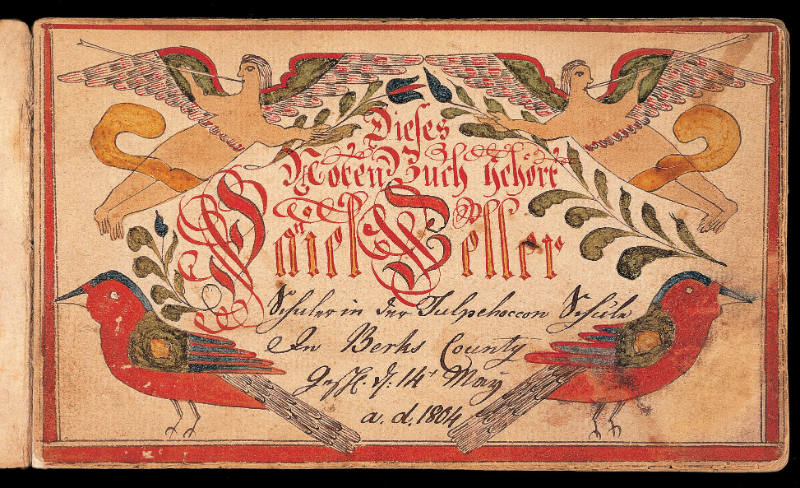 Dieses
Noten Buch gehört
Dãiel Zeller
Schuler in der Tulpehoccon Schule
In Berks County
d. 14t May
a. d. 1804